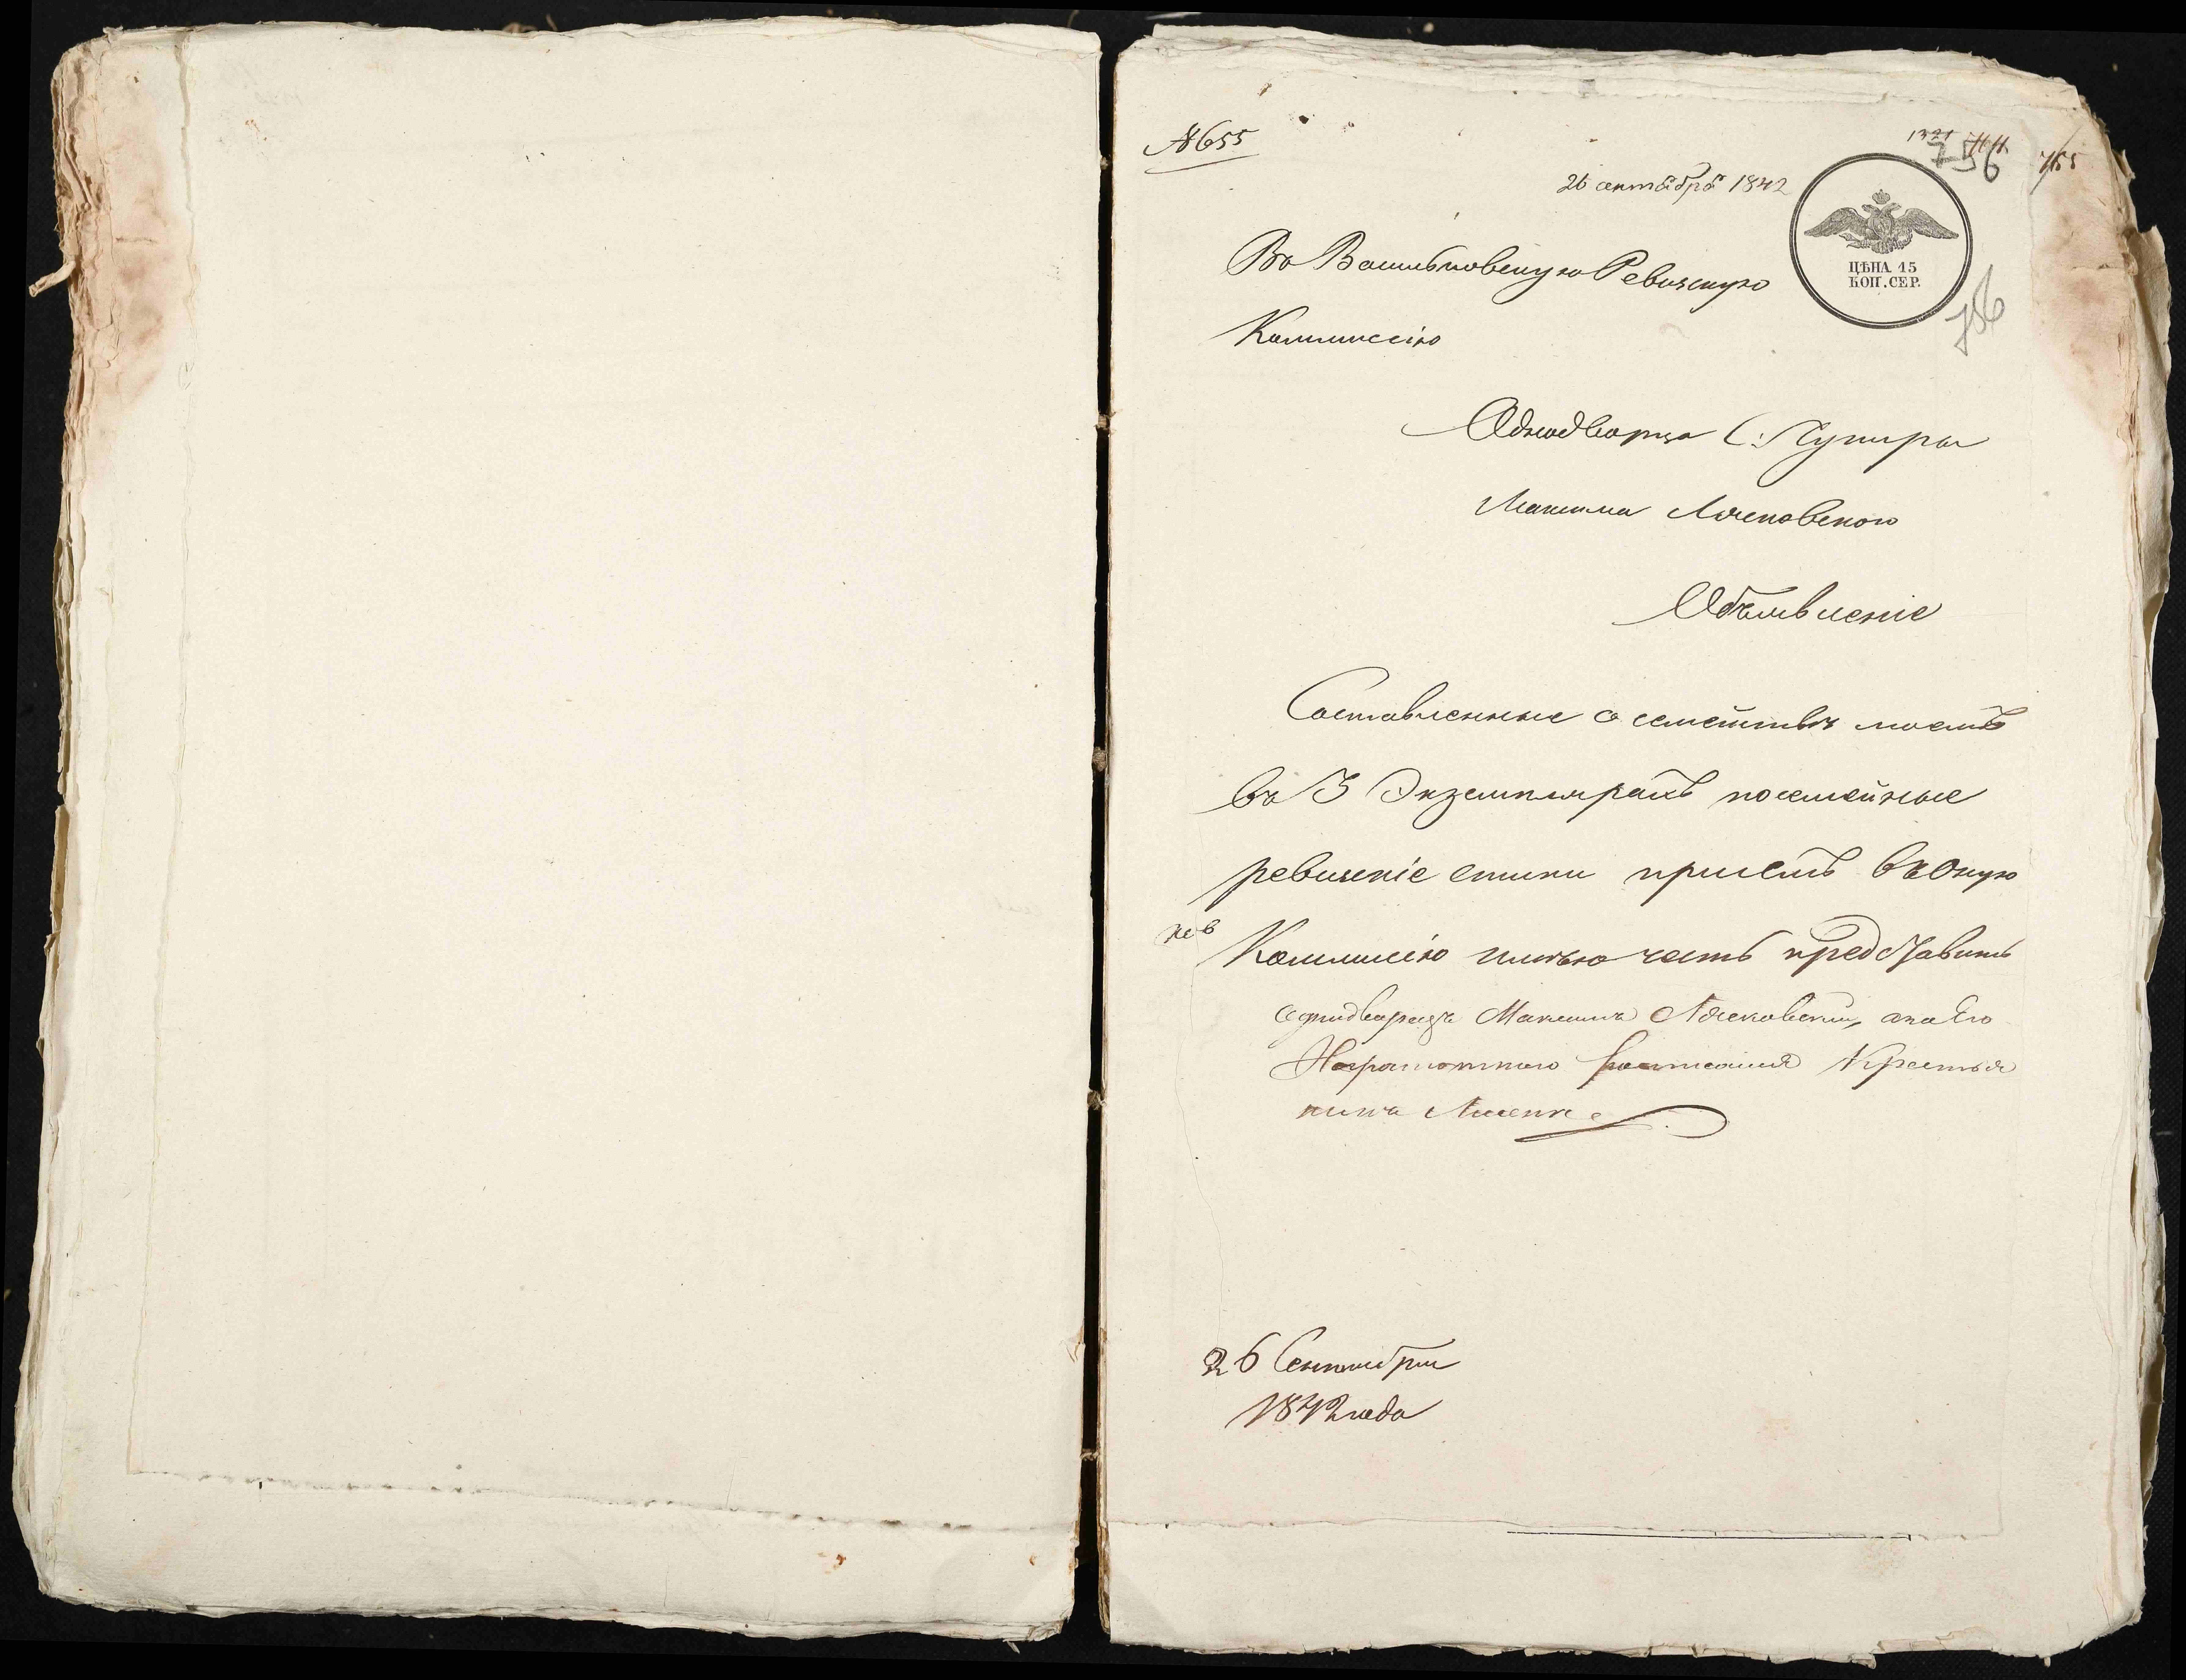 №655
26 сентября 1842
ЦѢНА 15
КОП. СЕР.
756
Во Васильковскую Ревизскую
Коммиссію
Однодворца С: Пугиры
Максима Лясковского
Объявленіе
Составленные о семействѣ моемъ
въ 3 Экземплярахъ посемейные
ревизскіе списки при семъ въ Оную
Коммиссію имѣю честь представить
однодворецъ Максимъ Лясковский, а на его
Неграмотного росписался Крестья
нинъ
26 Сентября
1842 года